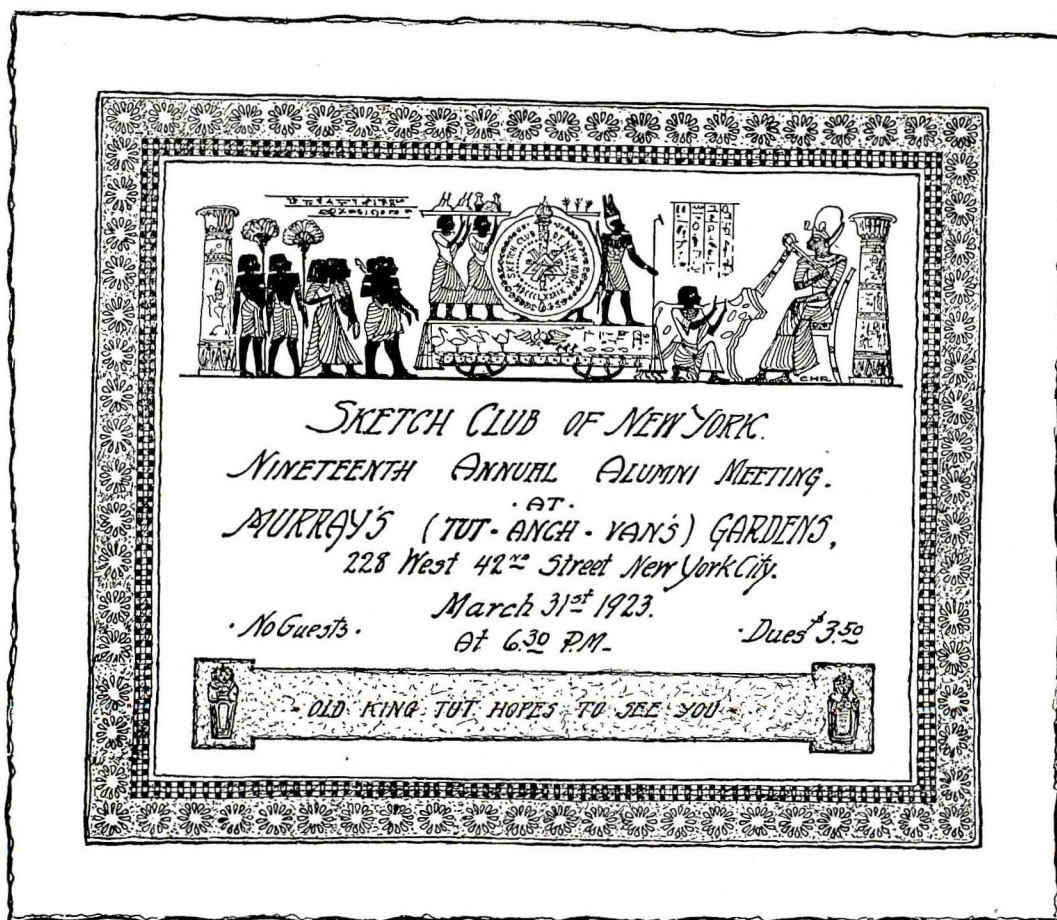 SKETCH CLUB OF NEW YORK
MDCCCLXXXIX
CHR.
SKETCH CLUB OF NEW YORK.
NINETEENTH ANNUAL ALUMNI MEETING.
· AT ·
MURRAY'S (TUT - ANCH - VAN'S) GARDENS,
228 West 42ND Street New York City.
March 31st 1923.
· No Guests ·
At 6.30 P.M.
· Dues $3.50
- OLD KING TUT HOPES TO SEE YOU -